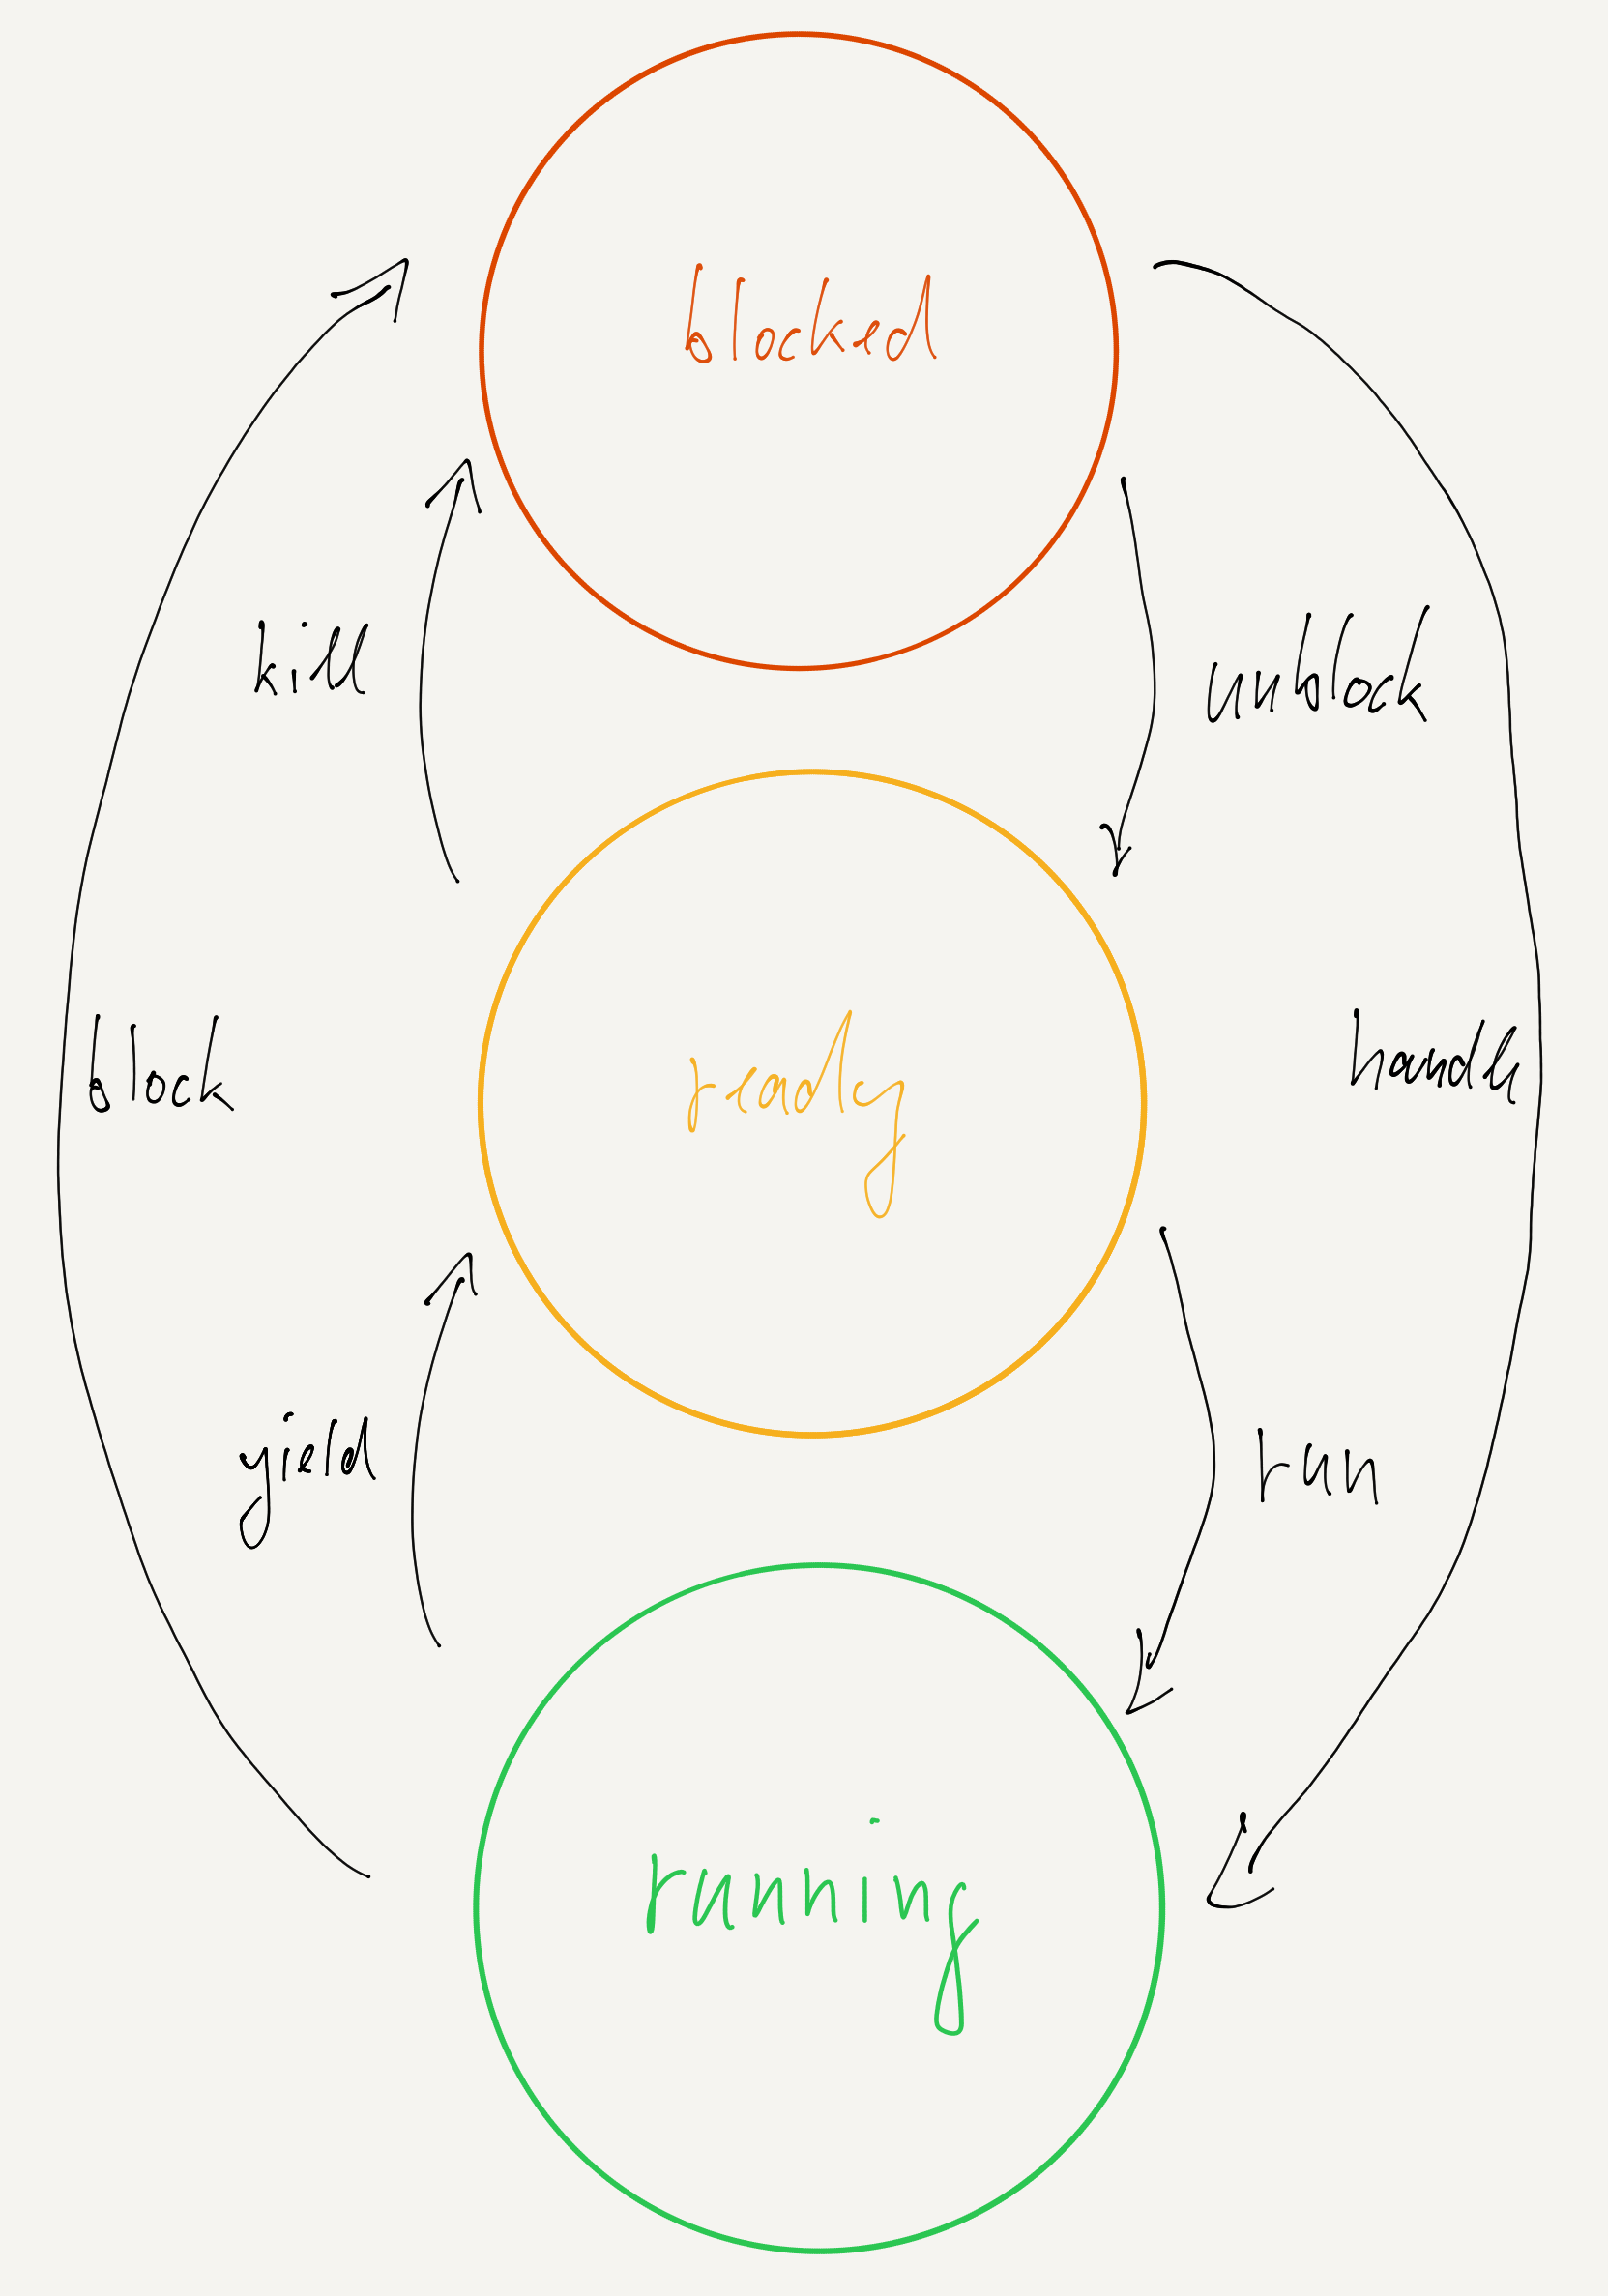 blocked
kill
unblock
block
ready
handle
yield
run
running